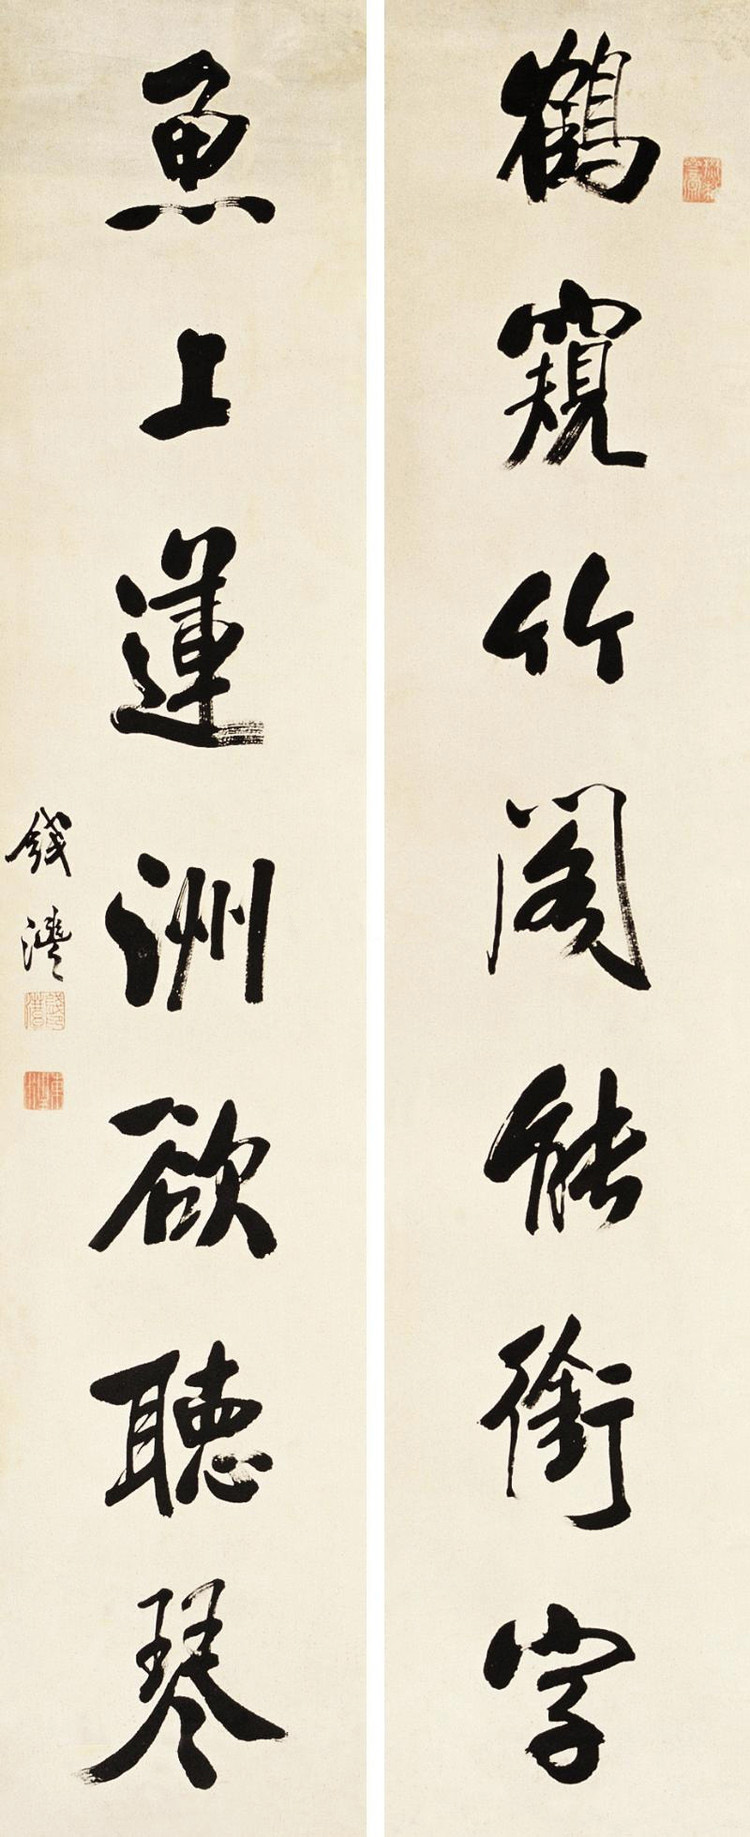 鶴窺竹閣能銜字
魚上蓮洲欲聽琴
錢灃